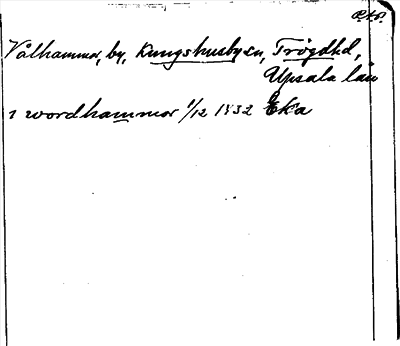 P.A.P.
Vålhammar, by, Kungshusby sn, Trögd hd,
Upsala län
i wordhammar 1/12 1832 Eka